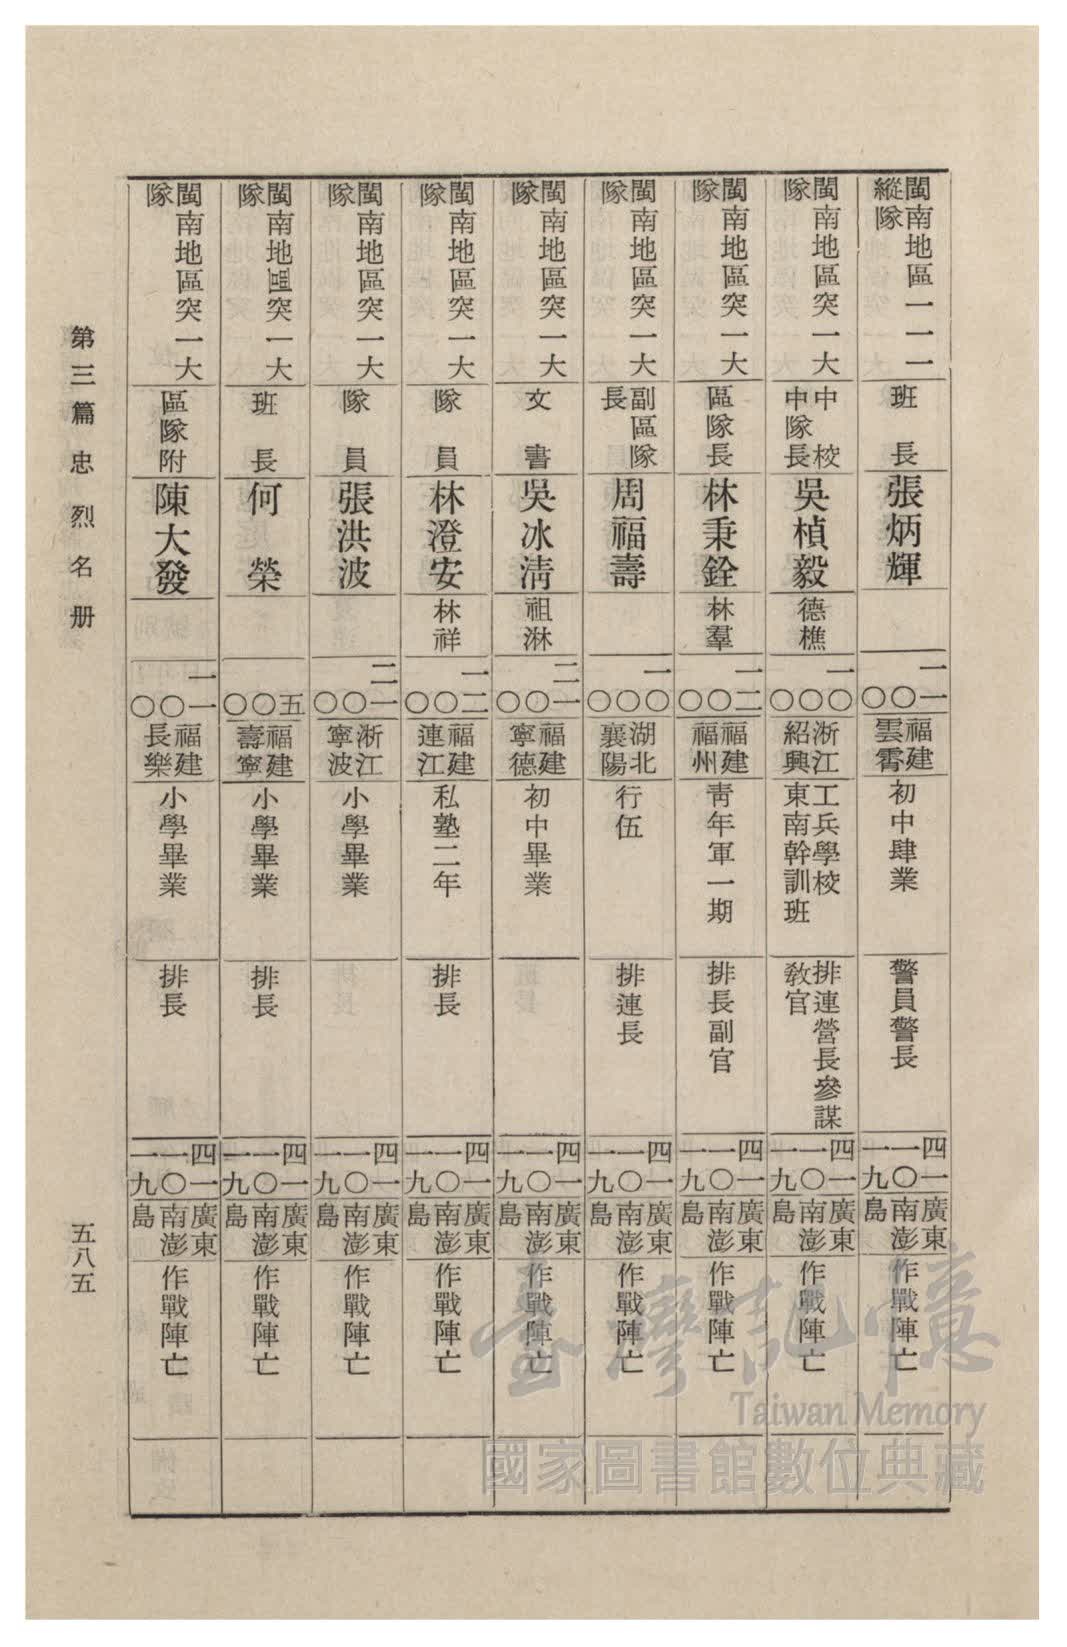 閩南地區一一一
縱隊
班長
張炳輝
一一
〇
〇
福建
雲霄
初中肄業
警員警長
四一
一〇
一九
廣東
南澎
島
作戰陣亡
閩南地區突一大
隊
中校
中隊長
吳楨毅
德樵
一〇
〇
〇
浙江
紹興
工兵學校
東南幹訓班
排連營長參謀
教官
四一
一〇
一九
廣東
南澎
島
作戰陣亡
閩南地區突一大
隊
區隊長
林秉銓
林羣
一二
〇
〇
福建
福州
靑年軍一期
排長副官
四一
一〇
一九
廣東
南澎
島
作戰陣亡
閩南地區突一大
隊
副區隊
長
周福壽
一〇
〇
〇
湖北
襄陽
行伍
排連長
四一
一〇
一九
廣東
南澎
島
作戰陣亡
閩南地區突一大
隊
文書
吳冰淸
祖淋
二一
〇
〇
福建
寧德
初中畢業
四一
一〇
一九
廣東
南澎
島
作戰陣亡
閩南地區突一大
隊
隊員
林澄安
林祥
一二
〇
〇
福建
連江
私塾二年
排長
四一
一〇
一九
廣東
南澎
島
作戰陣亡
閩南地區突一大
隊
隊員
張洪波
二一
〇
〇
浙江
寧波
小學畢業
四一
一〇
一九
廣東
南澎
島
作戰陣亡
閩南地區突一大
隊
班長
何榮
五
〇
〇
福建
壽寧
小學畢業
排長
四一
一〇
一九
廣東
南澎
島
作戰陣亡
閩南地區突一大
隊
區隊附
陳大發
一一
〇
〇
福建
長樂
小學畢業
排長
四一
一〇
一九
廣東
南澎
島
作戰陣亡
第三篇 忠烈名册
五八五
臺灣記憶
Taiwan Memory
國家圖書館數位典藏